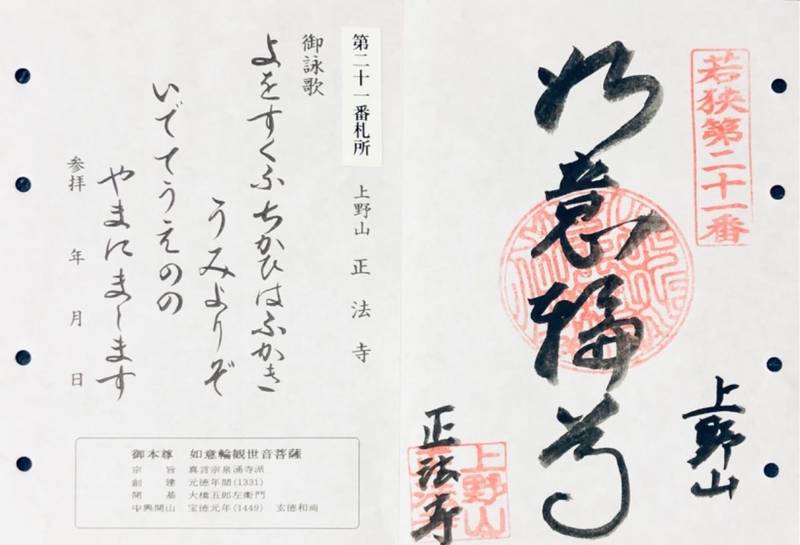 若狭第二十一番
上野山
如意輪尊
正法寺
上野山
正法寺
第二十一番札所 上野山 正法寺
御詠歌
よをすくふちかひはふかき
うみよりぞ
いでてうえのの
やまにまします
参拝 年 月 日
御本尊 如意輪観世音菩薩
宗旨 真言宗泉涌寺派
創建 元徳年間(1331)
開基 大橋五郎左衛門
中興開山 宝徳元年(1449) 玄徳和尚